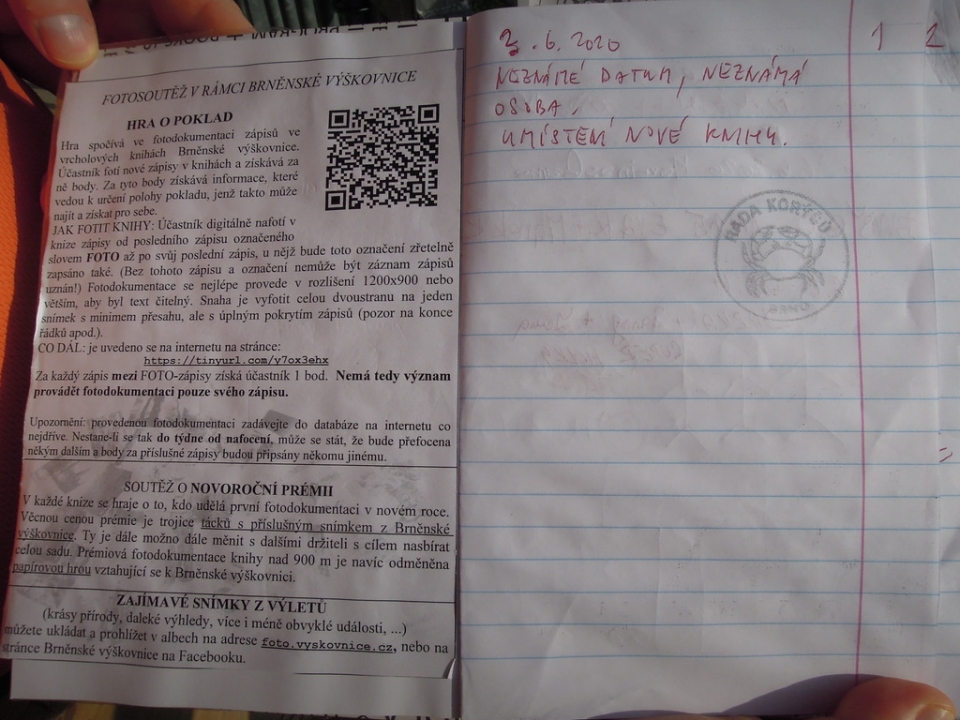 FOTOSOUTĚŽ V RÁMCI BRNĚNSKÉ VÝŠKOVNICE
HRA O POKLAD
Hra spočívá ve fotodokumentaci zápisů ve
vrcholových knihách Brněnské výškovnice.
Účastník fotí nové zápisy v knihách a získává za
ně body. Za tyto body získává informace, které
vedou k určení polohy pokladu, jenž takto může
najít a získat pro sebe.
JAK FOTIT KNIHY: Účastník digitálně nafotí v
knize zápisy od posledního zápisu označeného
slovem FOTO až po svůj poslední zápis, u nějž bude toto označení zřetelně
zapsáno také. (Bez tohoto zápisu a označení nemůže být záznam zápisů
uznán!) Fotodokumentace se nejlépe provede v rozlišení 1200x900 nebo
větším, aby byl text čitelný. Snaha je vyfotit celou dvoustranu na jeden
snímek s minimem přesahu, ale s úplným pokrytím zápisů (pozor na konce
řádků apod.).
CO DÁL: je uvedeno se na internetu na stránce:
https://tinyurl.com/y7ox3ehx
Za každý zápis mezi FOTO-zápisy získá účastník 1 bod. Nemá tedy význam
provádět fotodokumentaci pouze svého zápisu.
Upozornění: provedenou fotodokumentaci zadávejte do databáze na internetu co
nejdříve. Nestane-li se tak do týdne od nafocení, může se stát, že bude přefocena
někým dalším a body za příslušné zápisy budou připsány někomu jinému.
SOUTĚŽ O NOVOROČNÍ PRÉMII
V každé knize se hraje o to, kdo udělá první fotodokumentaci v novém roce.
Věcnou cenou prémie je trojice tácků s příslušným snímkem z Brněnské
výškovnice. Ty je dále možno dále měnit s dalšími držiteli s cílem nasbírat
celou sadu. Prémiová fotodokumentace knihy nad 900 m je navíc odměněna
papírovou hrou vztahující se k Brněnské výškovnici.
ZAJÍMAVÉ SNÍMKY Z VÝLETŮ
(krásy přírody, daleké výhledy, více i méně obvyklé události, ...)
můžete ukládat a prohlížet v albech na adrese foto.vyskovnice.cz, nebo na
stránce Brněnské výškovnice na Facebooku.
3.6.2020 1 2
NEZNÁMÉ DATUM, NEZNÁMÁ
OSOBA.
UMÍSTĚNÍ NOVÉ KNIHY.
RADA KORÝŠŮ
BRNO